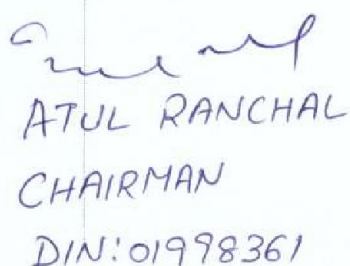 ATUL RANCHAL
CHAIRMAN
DIN:01998361